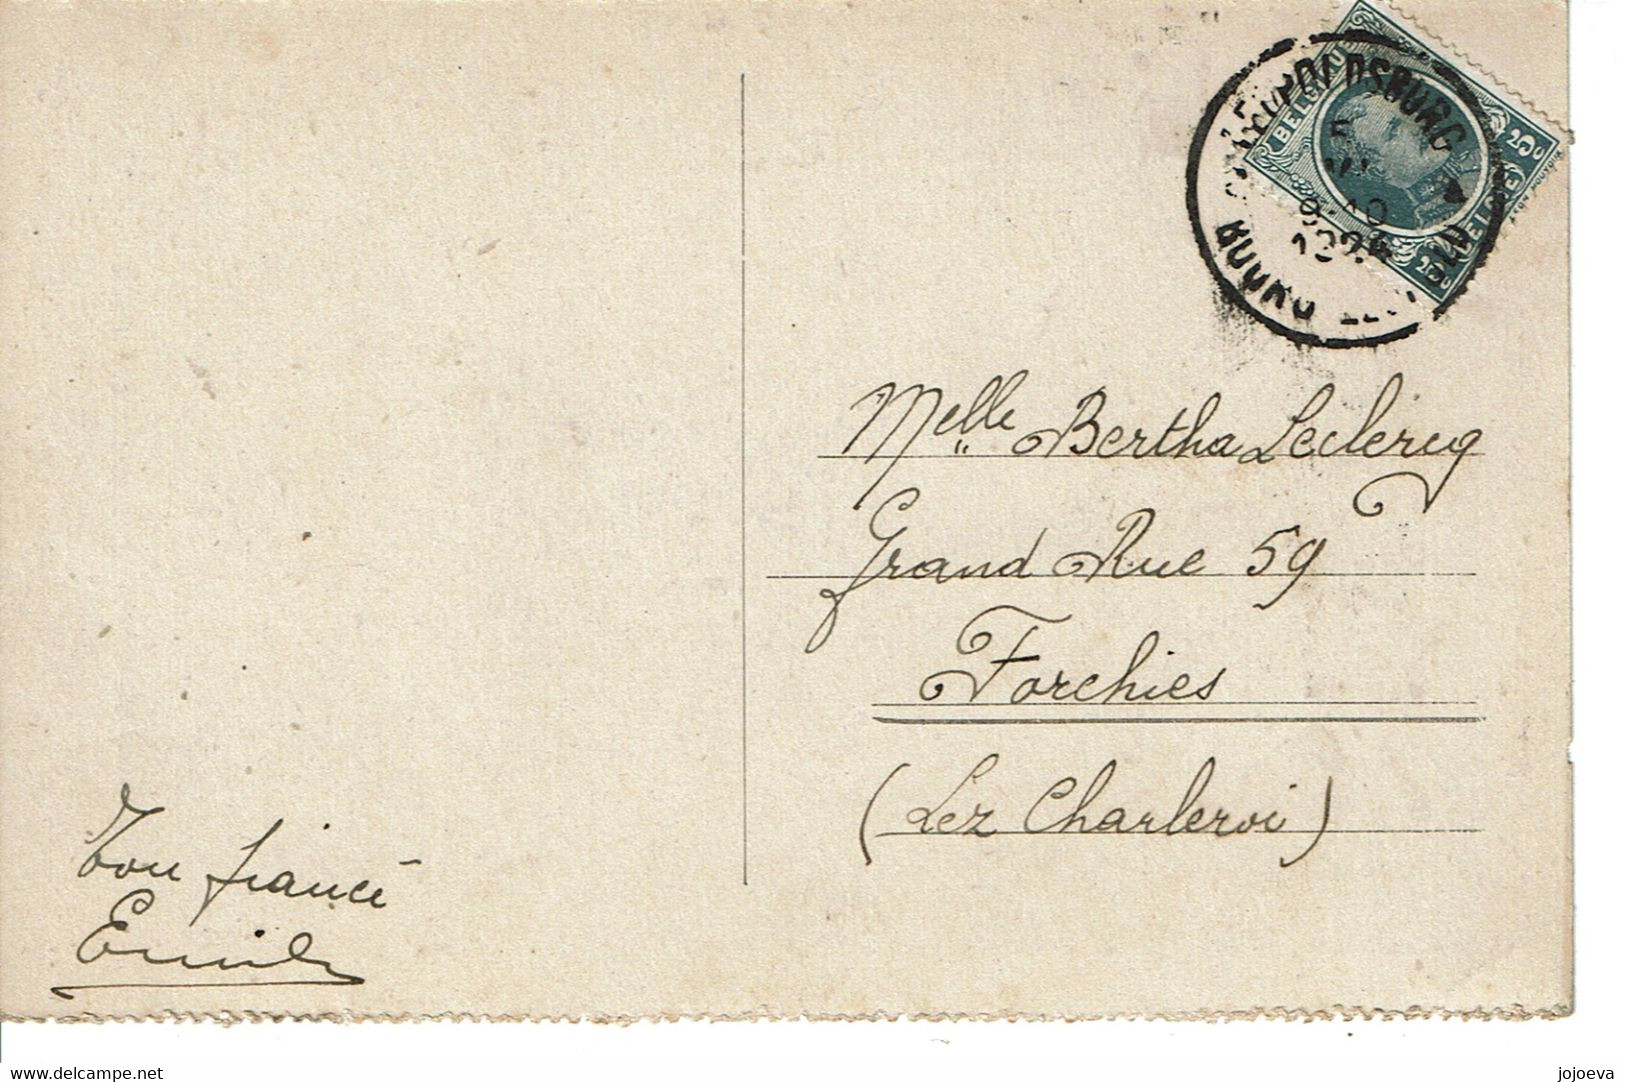 LEOPOLDSBURG
BOURG LEOPOLD
BELGIQUE
25c
BELGIË
25c
Melle Bertha Leclercq
Grand Rue 59
Forchies
(Lez Charleroi)
Ton fiancé
Emile
www.delcampe.net
jojoeva